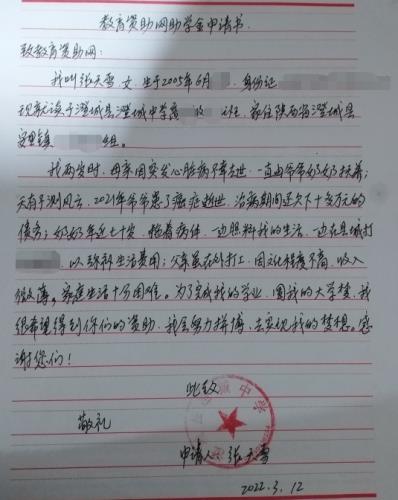 教育资助网助学金申请书
致教育资助网：
我叫张天雪 女，生于2005年6月 身份证
现就读于澄城县澄城中学高 级 班，家住陕西省澄城县
安里镇 组。
我两岁时，母亲因突发心脏病不幸去世，一直由爷爷奶奶扶养；
天有不测风云，2021年爷爷患了癌症逝世，治病期间还欠下十多万元的
债务；奶奶年近七十岁，拖着病体，一边照料我的生活，一边在县城打
，以弥补生活费用；父亲虽在外打工，因文化程度不高，收入
微薄。家庭生活十分困难。为了完成我的学业，圆我的大学梦，我
很希望得到你们的资助，我会努力拼搏，去实现我的梦想。感
谢您们！
此致
敬礼
申请人：张天雪
2022.3.12